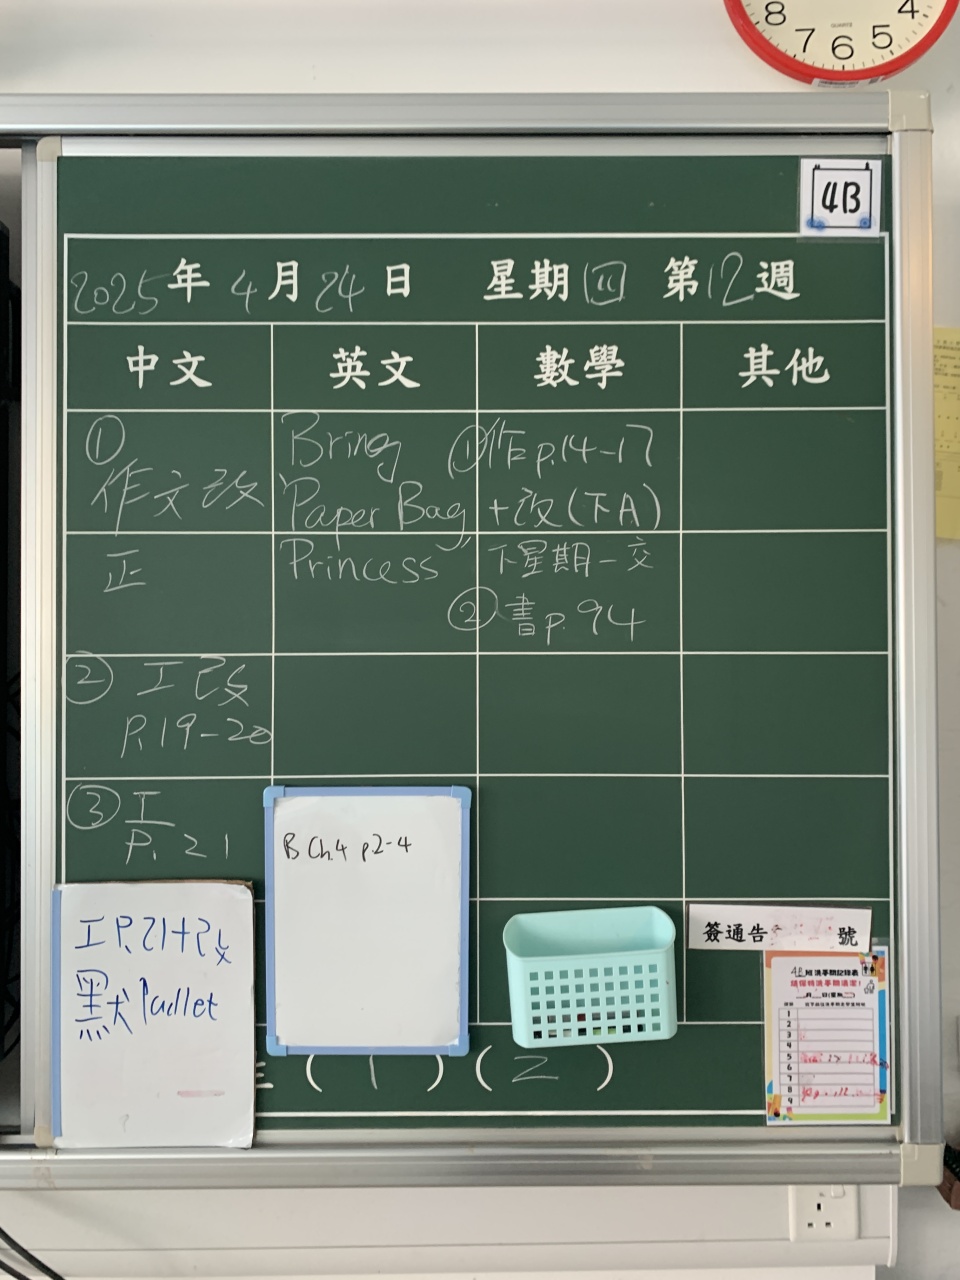 8 7 6 5 4
QUARTZ
4B
2025年4月24日 星期四 第12週
中文 英文 數學 其他
①
作文改
正
② 工改
P.19-20
③ 工
P.21
Bring
Paper Bag
Princess
① 作p.14-17
+改(下A)
下星期一交
② 書p.94
B Ch.4 p.2-4
工P.21+改
默Padlet
(1)(2)
簽通告 號
4B
1
2
3
4
5
6
7
8
9